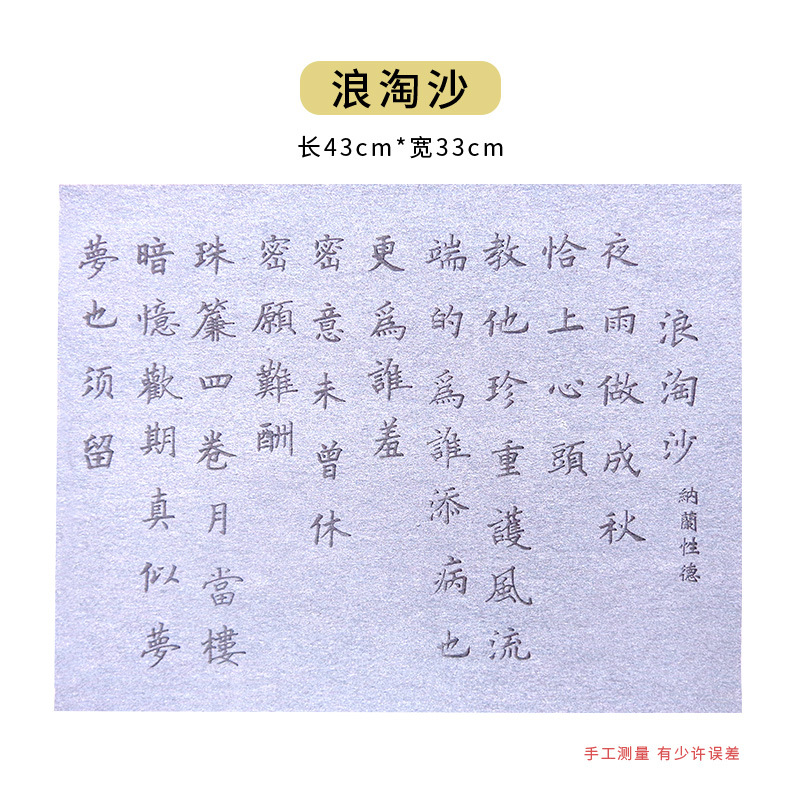 浪淘沙
长43cm*宽33cm
浪淘沙 納蘭性德
夜雨做成秋
恰上心頭
教他珍重護風流
端的為誰添病也
更為誰羞
密意未曾休
密願難酬
珠簾四卷月當樓
暗憶歡期真似夢
夢也须留
手工测量 有少许误差